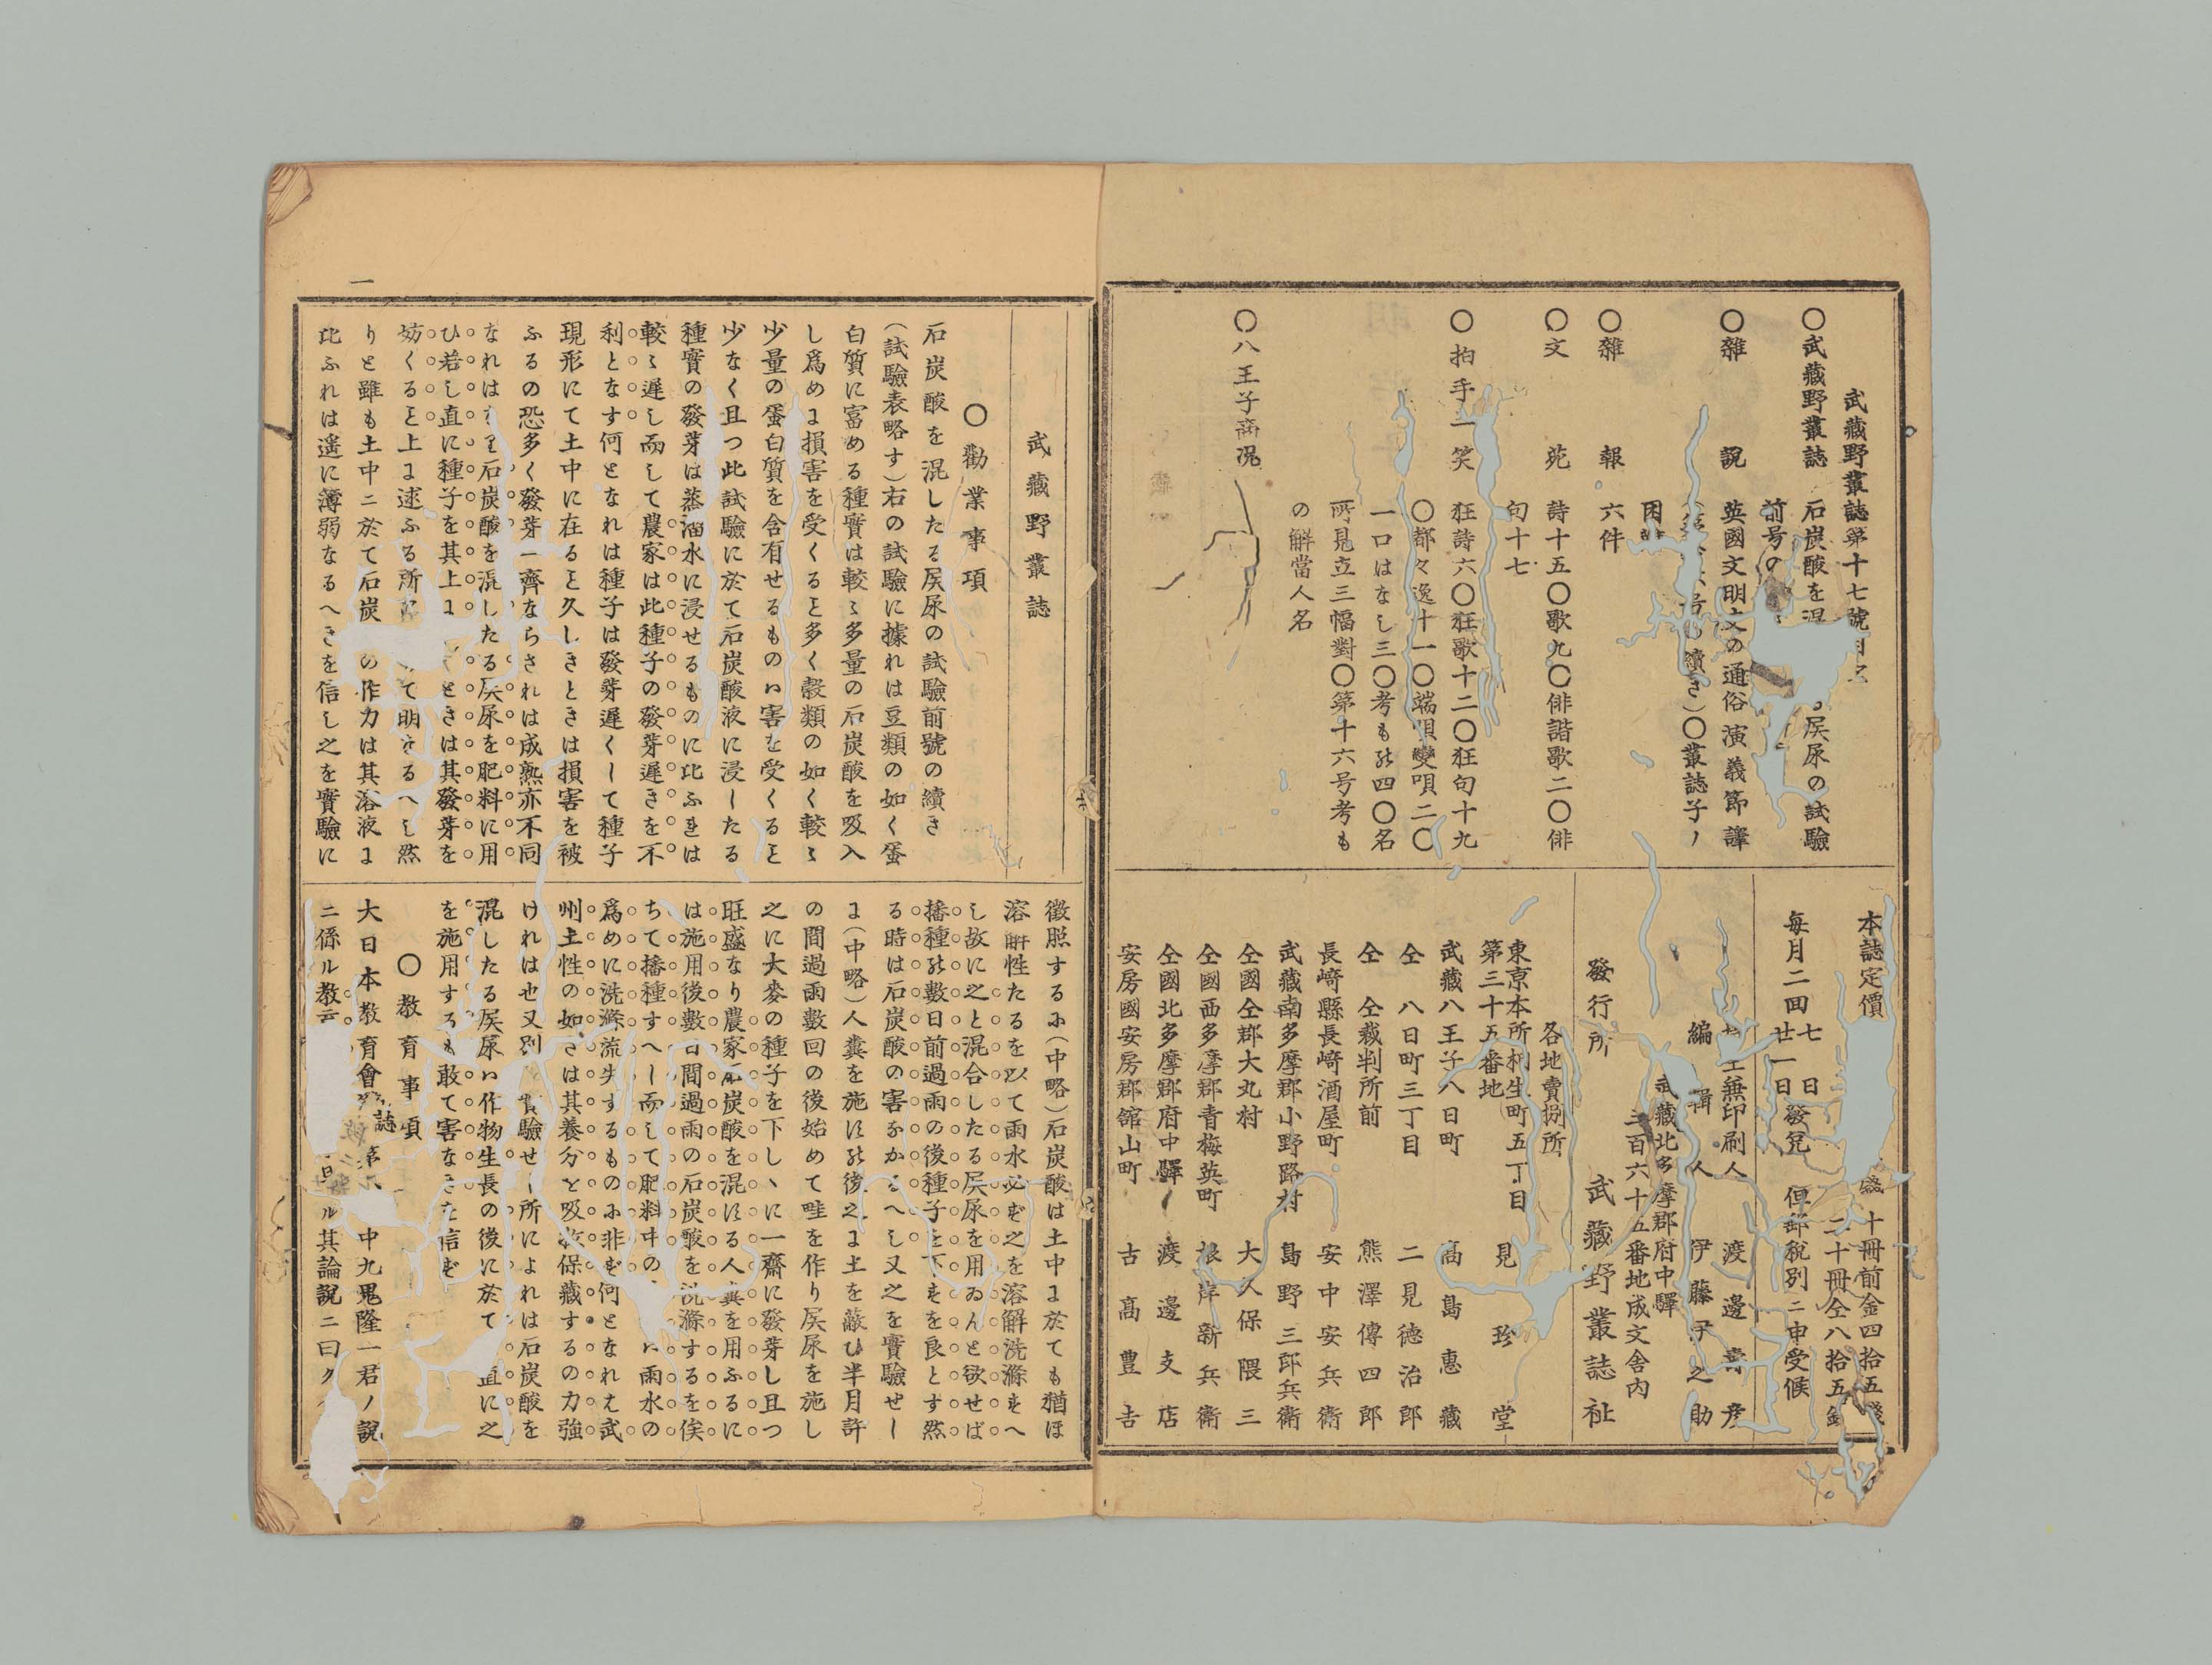 武藏野叢誌第十七號目
○武藏野叢誌
石炭酸を混 屎尿の試驗
前号の
○雜 說
英國文明史の通俗演義節譯
号 續き)○叢誌子ノ
困
○雜 報
六件
○文 苑
詩十五○歌九○俳諧歌二○俳
句十七
○拍手一笑
狂詩六○狂歌十二○狂句十九
○都々逸十一○端唄變唄二○
一口はなし三○考もの四○名
所見立三幅對○第十六号考も
の解當人名
○八王子商况
本誌定價
十冊前金四拾五錢
二十冊仝八拾五錢
每月二回 七日 廿一日 發兌 但郵稅別ニ申受候
無印刷人 渡邊壽彦
編輯人 伊藤伊之助
武藏北多摩郡府中驛
三百六十五番地成文舍内
發行所 武藏野叢誌社
各地賣捌所
東京本所柯生町五丁目
第三十五番地 見珍堂
武藏八王子八日町 高島惠藏
仝 八日町三丁目 二見德治郎
仝 仝裁判所前 熊澤傳四郎
長崎縣長崎酒屋町 安中安兵衛
武藏南多摩郡小野路村 島野三郎兵衛
仝國仝郡大丸村 大久保隈三
仝國西多摩郡青梅英町 根岸新兵衛
仝國北多摩郡府中驛 渡邊支店
安房國安房郡舘山町 古髙豊吉
武藏野叢誌
○勸業事項
石炭酸を混したる屎尿の試驗前號の續き
(試驗表略す)右の試驗に據れは豆類の如く蛋
白質に富める種實は較〻多量の石炭酸を吸入
し爲めに損害を受くるヿ多く穀類の如く較〻
少量の蛋白質を含有せるものハ害を受くるヿ
少なく且つ此試驗に於て石炭酸液に浸したる
種實の發芽は蒸溜水に浸せるものに比ふれは
較〻遲し而して農家は此種子の發芽遲きを不
利となす何となれは種子は發芽遲くして種子
現形にて土中に在るヿ久しきときは損害を被
ふるの恐多く發芽一齊ならされは成熟亦不同
なれは 石炭酸を混したる屎尿を肥料に用
ひ若し直に種子を其上に ときは其發芽を
妨くるヿ上に述ふる所 て明なるへし然
りと雖も土中ニ於て石炭 の作力は其溶液に
比ふれは遙に薄弱なるへきを信し之を實驗に
徵照するに(中略)石炭酸は土中に於ても猶ほ
溶解性たるを以て雨水必ず之を溶解洗滌すへ
し故に之と混合したる屎尿を用ゐんと欲せば
播種の數日前過雨の後種子を下すを良とす然
る時は石炭酸の害なかるへし又之を實驗せし
に(中略)人糞を施せの後之に土を蔽ひ半月許
の間過雨數回の後始めて畦を作り屎尿を施し
之に大麥の種子を下しゝに一齊に發芽し且つ
旺盛なり農家石炭酸を混せる人糞を用ふるに
は施用後數日間過雨の石炭酸を洗滌するを俟
ちて播種すへし而して肥料中の ハ雨水の
爲めに洗滌流失するものに非ず何となれは武
州土性の如きは其養分を吸收保藏するの力強
けれは也又別 實驗せし所によれは石炭酸を
混したる屎尿ハ作物生長の後に於て 直に之
を施用するも敢て害なきを信ず
○教育事項
大日本教育會 誌第六 中九鬼隆一君ノ說
ニ係ル教 ル其論說ニ曰ク
一